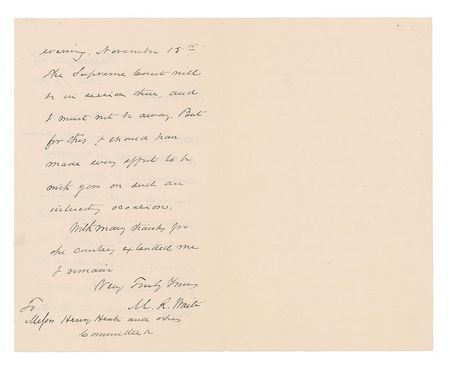 evening, November 15th
the Supreme Court will
be in session then, and
I must not be away. But
for this I should have
made every effort to be
with you on such an
interesting occasion.
With many thanks for
the courtesy extended me
I remain
Very Truly Yours
M. R. Waite
To
Messrs Henry and others
Committee